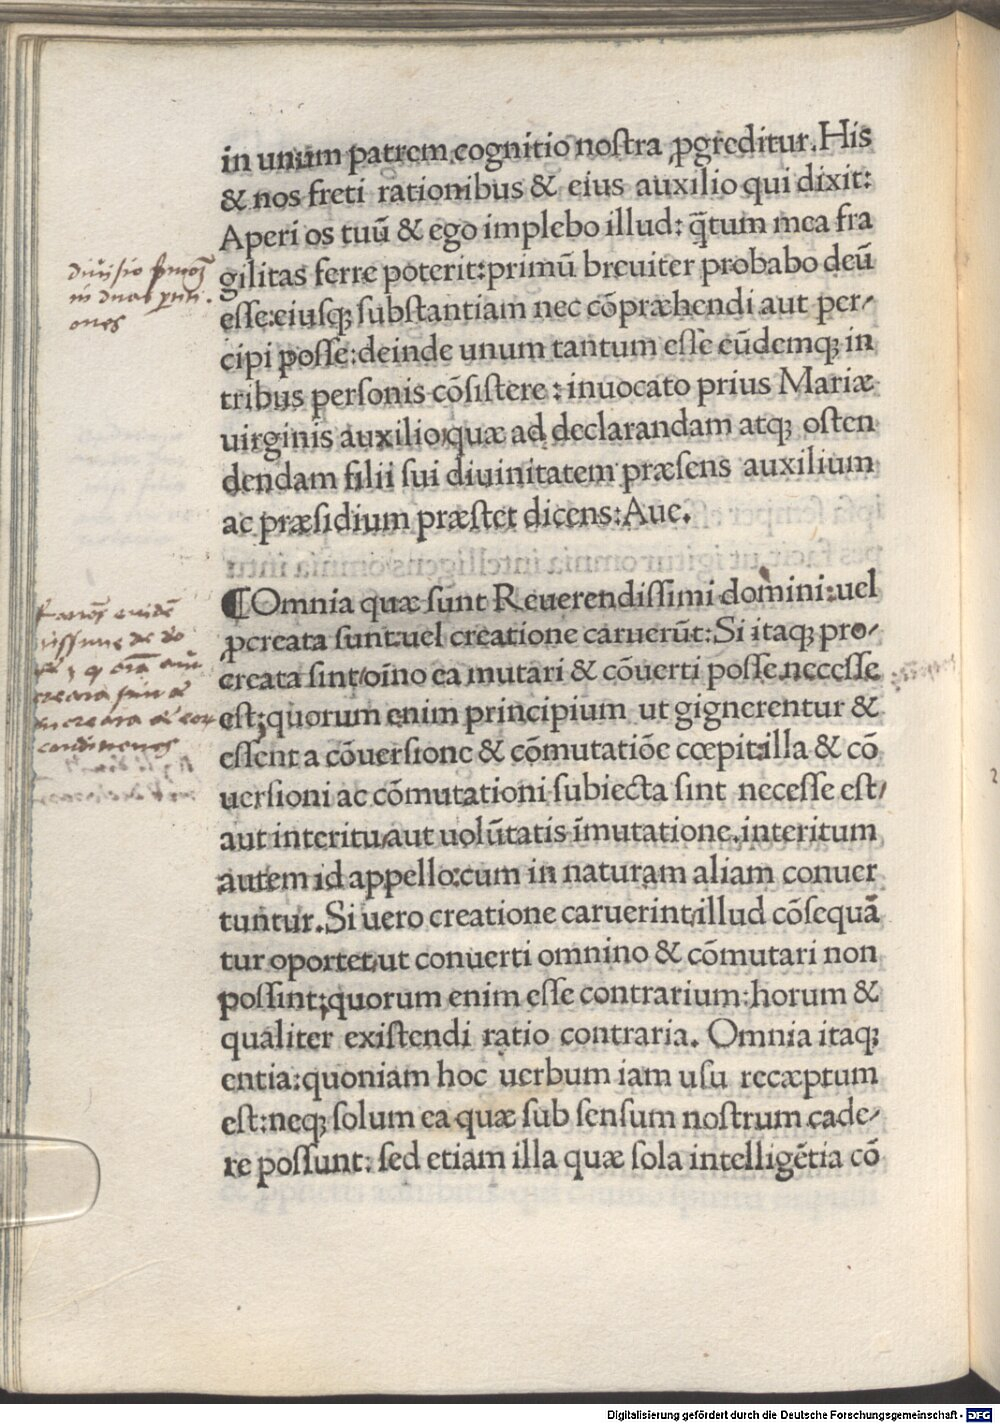 in unum patrem cognitio noſtra ꝓgreditur. His
& nos freti rationibus & eius auxilio qui dixit:
Aperi os tuū & ego implebo illud: q̄tum mea fra
gilitas ferre poterit: primū breuiter probabo deū
eſſe: eiuſqꝫ ſubſtantiam nec cōpræhendi aut per-
cipi poſſe: deinde unum tantum eſſe eūdemqꝫ in
tribus perſonis cōſiſtere: inuocato prius Mariæ
uirginis auxilio: quæ ad declarandam atqꝫ oſten
dendam filii ſui diuinitatem præſens auxilium
ac præſidium præſtet dicens: Aue.
diuisio
in duas
ones
¶Omnia quæ ſunt Reuerendiſſimi domini: uel
ꝓcreata ſunt: uel creatione caruerūt: Si itaqꝫ pro-
creata ſint/oīno ea mutari & cōuerti poſſe neceſſe
eſt; quorum enim principium ut gignerentur &
eſſent a cōuerſione & cōmutatiōe cœpit: illa & cō
uerſioni ac cōmutationi ſubiecta ſint neceſſe eſt/
aut interitu/aut uolūtatis īmutatione. interitum
autem id appello: cum in naturam aliam conuer
tuntur. Si uero creatione caruerint/illud cōſequā
tur oportet/ut conuerti omnino & cōmutari non
poſſint; quorum enim eſſe contrarium: horum &
qualiter exiſtendi ratio contraria. Omnia itaqꝫ
entia: quoniam hoc uerbum iam uſu recæptum
eſt: neqꝫ ſolum ea quæ ſub ſenſum noſtrum cade-
re poſſunt: ſed etiam illa quæ ſola intelligētia cō
Digitalisierung gefördert durch die Deutsche Forschungsgemeinschaft - DFG